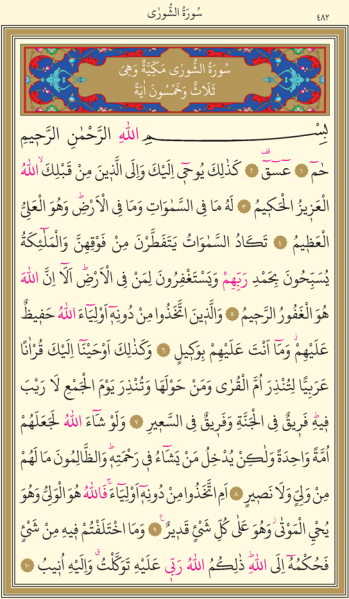 سُورَةُ الشُّورٰى
٤٨٢
سُورَةُ الشُّورٰى مَكِّيَّةٌ وَهِيَ
ثَلَاثٌ وَخَمْسُونَ اٰيَةً
بِسْمِ اللهِ الرَّحْمٰنِ الرَّحِيمِ
حٰمٓ ۚ ١ عٓسٓقٓ ٢ كَذٰلِكَ يُوحٖٓي اِلَيْكَ وَاِلَى الَّذٖينَ مِنْ قَبْلِكَۙ اللهُ
الْعَزٖيزُ الْحَكٖيمُ ٣ لَهُ مَا فِي السَّمٰوَاتِ وَمَا فِي الْاَرْضِؕ وَهُوَ الْعَلِيُّ
الْعَظٖيمُ ٤ تَكَادُ السَّمٰوَاتُ يَتَفَطَّرْنَ مِنْ فَوْقِهِنَّ وَالْمَلٰٓئِكَةُ
يُسَبِّحُونَ بِحَمْدِ رَبِّهِمْ وَيَسْتَغْفِرُونَ لِمَنْ فِي الْاَرْضِؕ اَلَٓا اِنَّ اللهَ
هُوَ الْغَفُورُ الرَّحٖيمُ ٥ وَالَّذٖينَ اتَّخَذُوا مِنْ دُونِهٖٓ اَوْلِيَٓاءَ اللهُ حَفٖيظٌ
عَلَيْهِمْؗ وَمَٓا اَنْتَ عَلَيْهِمْ بِوَكٖيلٍ ٦ وَكَذٰلِكَ اَوْحَيْنَٓا اِلَيْكَ قُرْاٰنًا
عَرَبِيًّا لِتُنْذِرَ اُمَّ الْقُرٰى وَمَنْ حَوْلَهَا وَتُنْذِرَ يَوْمَ الْجَمْعِ لَا رَيْبَ
فٖيهِؕ فَرٖيقٌ فِي الْجَنَّةِ وَفَرٖيقٌ فِي السَّعٖيرِ ٧ وَلَوْ شَٓاءَ اللهُ لَجَعَلَهُمْ
اُمَّةً وَاحِدَةً وَلٰكِنْ يُدْخِلُ مَنْ يَشَٓاءُ فٖي رَحْمَتِهٖؕ وَالظَّالِمُونَ مَا لَهُمْ
مِنْ وَلِيٍّ وَلَا نَصٖيرٍ ٨ اَمِ اتَّخَذُوا مِنْ دُونِهٖٓ اَوْلِيَٓاءَۚ فَاللهُ هُوَ الْوَلِيُّ وَهُوَ
يُحْيِ الْمَوْتٰىؗ وَهُوَ عَلٰى كُلِّ شَيْءٍ قَدٖيرٌ ٩ وَمَا اخْتَلَفْتُمْ فٖيهِ مِنْ شَيْءٍ
فَحُكْمُهُٓ اِلَى اللهِؕ ذٰلِكُمُ اللهُ رَبّٖي عَلَيْهِ تَوَكَّلْتُۗ وَاِلَيْهِ اُنٖيبُ ١٠